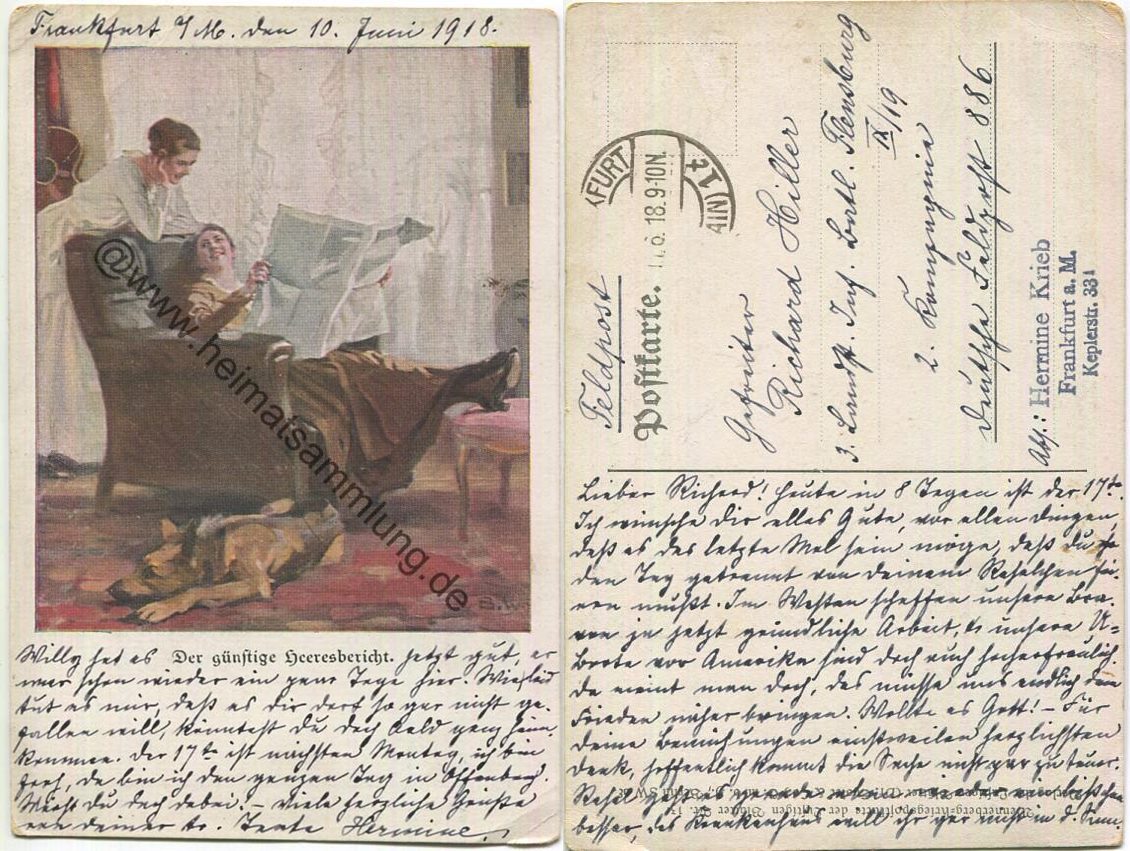 Frankfurt a/M. den 10. Juni 1918.
@www.heimatsammlung.de
Der günstige Heeresbericht.
Willy hat es jetzt gut, er
war schon wieder ein paar Tage hier. Wie leid
tut es mir, daß es dir dort so gar nicht ge-
fallen will, könntest du doch bald ganz heim-
kommen. Der 17te ist nächsten Montag, ich bin
froh, da bin ich den ganzen Tag in Offenbach.
Wärst du doch dabei! – Viele herzliche Grüße
von deiner tr. Tante Hermine.
Feldpost
Postkarte.
FURT
18.9-10N.
Gefreiter
Richard Hiller
3. Landst. Inf. Batl. Flensburg
IX/19
2. Kompagnie
Deutsche Feldpost 886
Abs.: Hermine Krieb
Frankfurt a. M.
Keplerstr. 331
Lieber Richard! Heute in 8 Tagen ist der 17te.
Ich wünsche dir alles Gute, vor allen Dingen,
daß es das letzte Mal sein möge, daß du
den Tag getrennt von deinem Reselchen fei-
ern mußt. Im Westen schaffen unsere Bra-
ven ja jetzt gründliche Arbeit, u. unsere U-
Boote vor Amerika sind doch auch hocherfreulich.
Da meint man doch, das müsse uns endlich dem
Frieden näher bringen. Wollte es Gott! – Für
deine Bemühungen einstweilen herzlichsten
Dank, hoffentlich kommt die Sache nicht gar zu teuer.
Resel geht es
besser, das Krankenhaus will ihr gar nicht in d. Sinn.